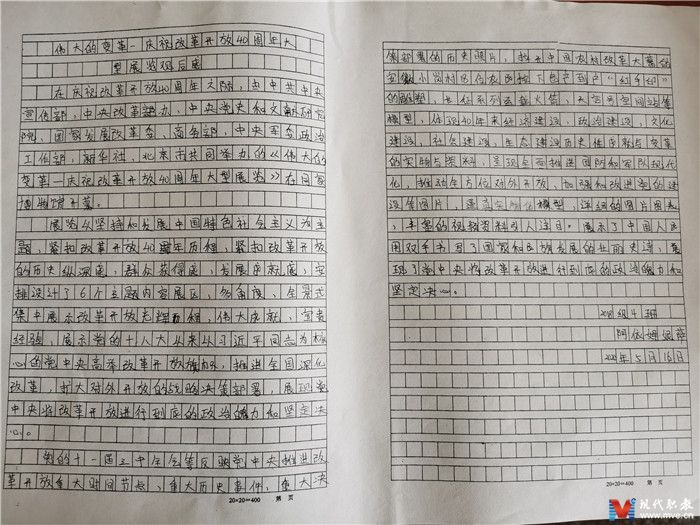 伟大的变革—庆祝改革开放40周年大
型展览观后感
在庆祝改革开放40周年之际，由中共中央
宣传部，中央改革办，中央党史和文献研究
院，国家发展改革委，商务部，中央军委政治
工作部，新华社，北京市共同举办的《伟大的
变革—庆祝改革开放40周年大型展览》在国家
博物馆开幕。
展览以坚持和发展中国特色社会主义为主
题，紧扣改革开放40周年历程，紧扣改革开放
的历史纵深感，群众获得感，发展成就感，安
排设计了6个主题内容展区，多角度、全景式
集中展示改革开放光辉历程，伟大成就、宝贵
经验，展示党的十八大以来以习近平同志为核
心的党中央高举改革开放旗帜，推进全国深化
改革，扩大对外开放的战略决策部署，展现党
中央将改革开放进行到底的政治魄力和坚定决
心。
党的十一届三中全会等反映党中央推进改
革开放重大时间节点，重大历史事件，重大决
策部署的历史照片，拉开中国农村改革大幕的
安徽小岗村
的雕塑，长征系列运载火箭，天宫号空间站等
模型，体现40年来经济建设，政治建设，文化
建设，社会建设，生态建设历史性成就与变革
的实物与资料，呈现全面推进国防和军队现代
化，推动全方位对外开放，加强和改进党的建
设等图片，模型，详细的图片图表
，丰富的视频资料引人注目。展示了中国人民
用双手书写了国家和民族发展的壮丽史诗，展
现了党中央将改革开放进行到底的政治魄力和
坚定决心。
级4班
阿依
年5月16日
20×20=400 第 页
20×20=400 第 页
现代职教
www.mve.cn